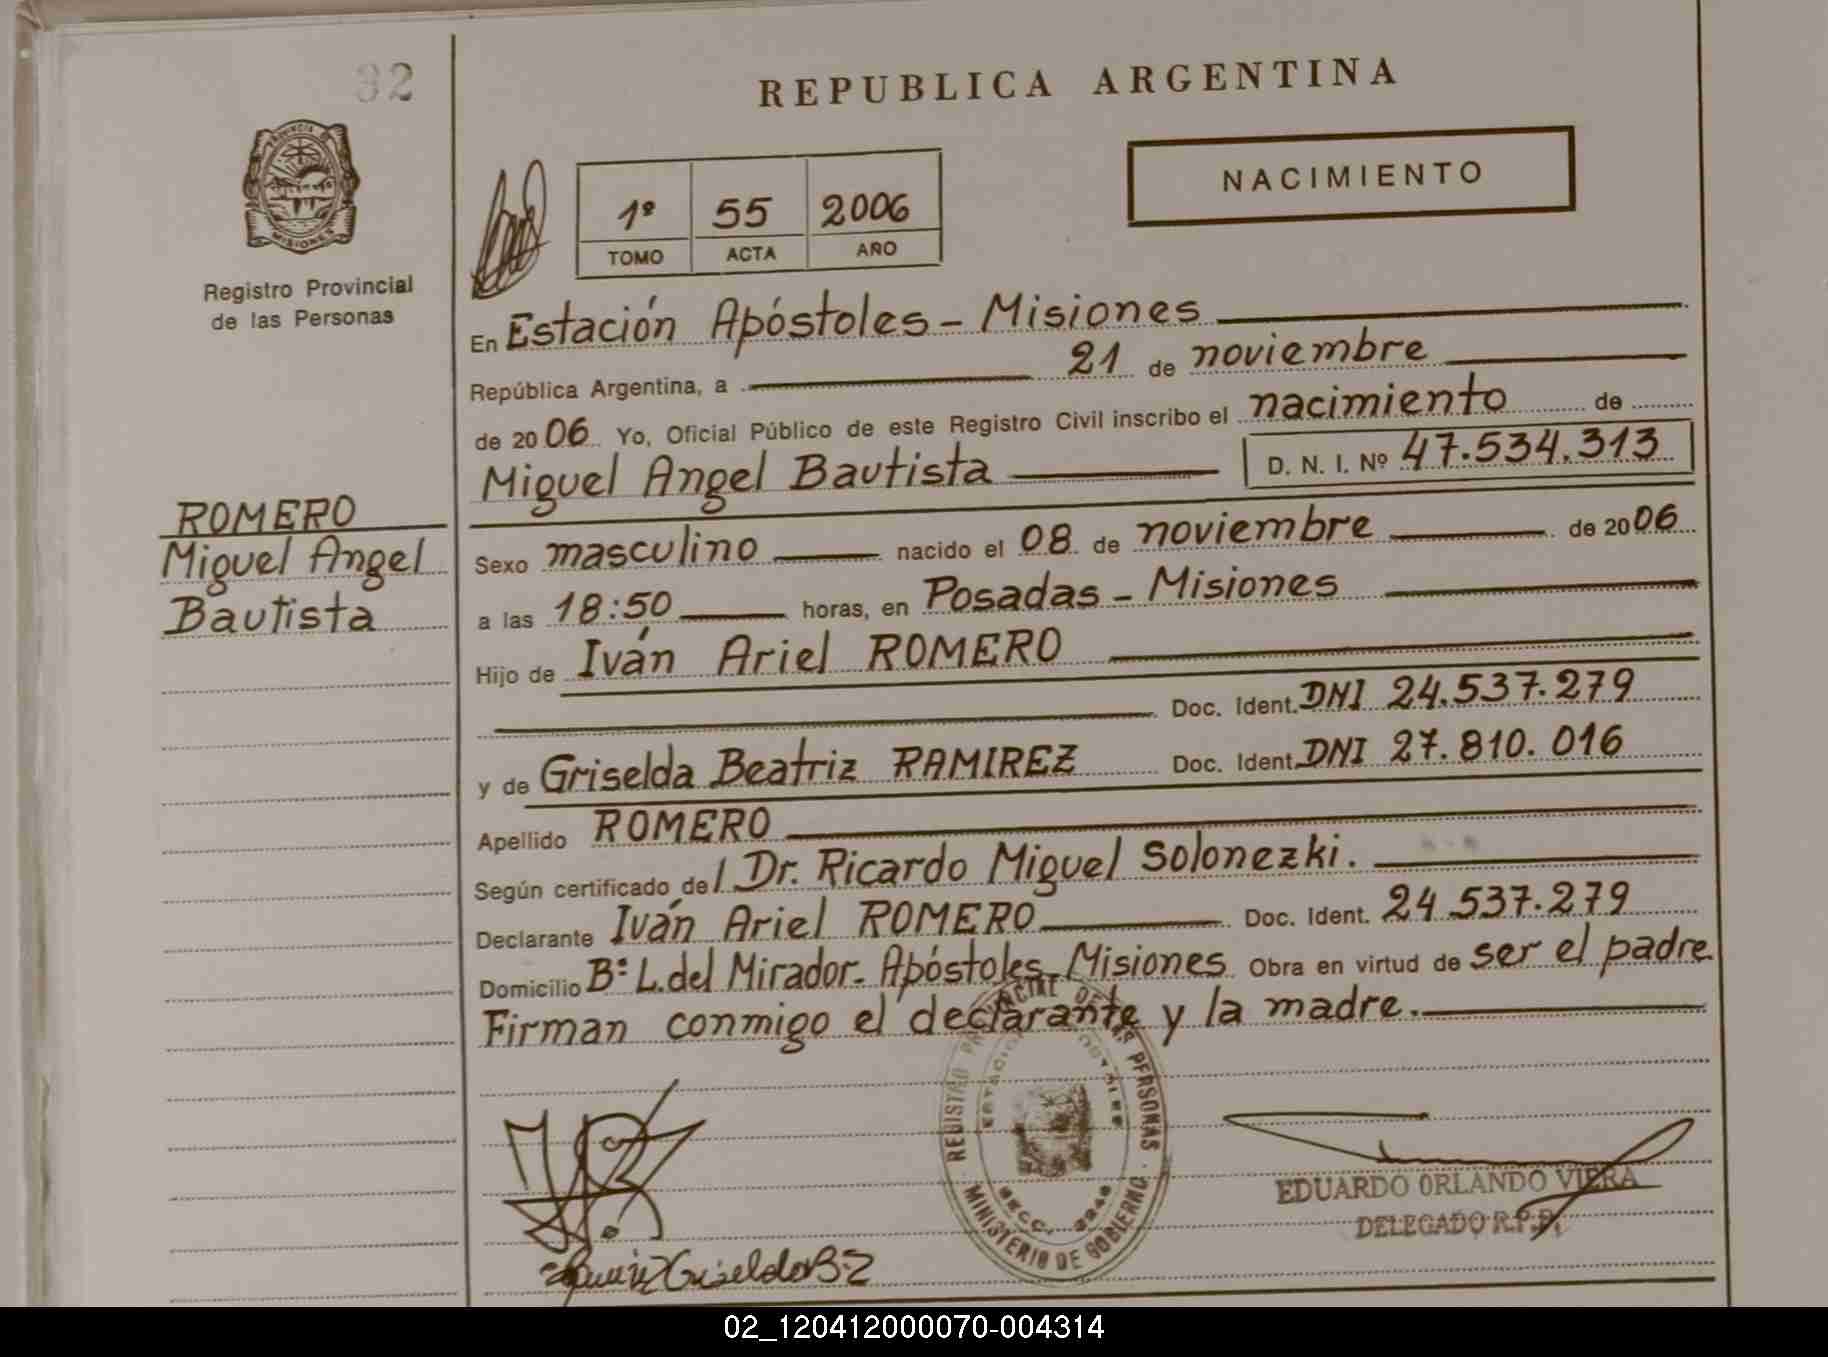 32
REPUBLICA ARGENTINA
NACIMIENTO
PROVINCIA DE
MISIONES
Registro Provincial
de las Personas
1º 55 2006
TOMO ACTA AÑO
En Estación Apóstoles - Misiones
República Argentina, a 21 de noviembre
de 2006 Yo, Oficial Público de este Registro Civil inscribo el nacimiento de
Miguel Angel Bautista D. N. I. Nº 47.534.313
ROMERO
Miguel Angel
Bautista
Sexo masculino nacido el 08 de noviembre de 2006
a las 18:50 horas, en Posadas - Misiones
Hijo de Iván Ariel ROMERO
Doc. Ident. DNI 24.537.279
y de Griselda Beatriz RAMIREZ Doc. Ident. DNI 27.810.016
Apellido ROMERO
Según certificado de/ Dr. Ricardo Miguel Solonezki.
Declarante Iván Ariel ROMERO Doc. Ident. 24 537.279
Domicilio Bº L. del Mirador - Apóstoles - Misiones Obra en virtud de ser el padre
Firman conmigo el declarante y la madre.
REGISTRO DE LAS PERSONAS
MINISTERIO DE GOBIERNO
EDUARDO ORLANDO VIERA
DELEGADO R.P.P.
02_120412000070-004314